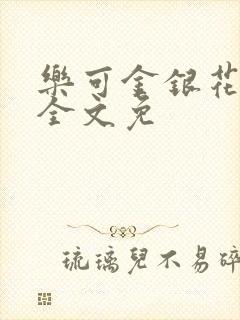 樂可金銀花
全文免
琉璃兒不易碎